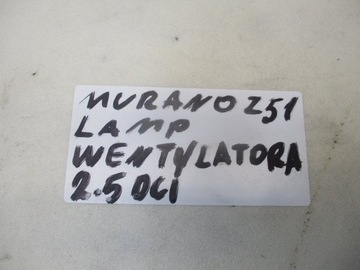 MURANO Z51
LAMP
WENTYLATORA
2.5 DCI